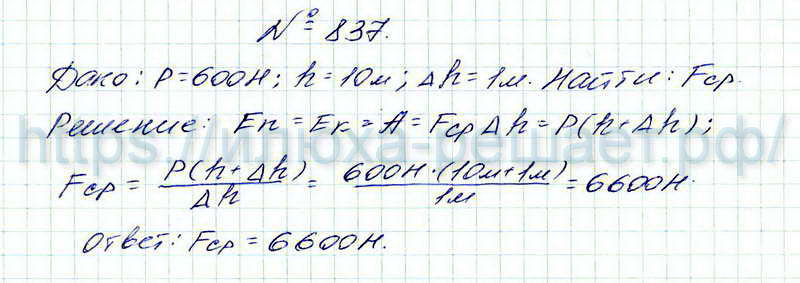 № 837.
Дано: P = 600Н; h = 10м; Δh = 1м. Найти: Fср.
Решение: Eп = Eк = A = Fср Δh = P(h + Δh);
Fср = P(h + Δh)/Δh = 600Н·(10м+1м)/1м = 6600Н.
Ответ: Fср = 6600Н.
https://илюха-решает.рф/